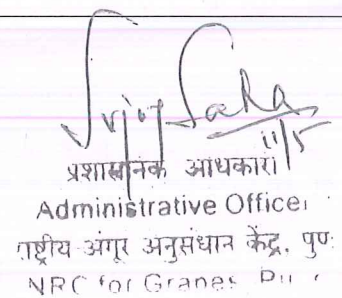 Saha
11/5
प्रशासनिक अधिकारी
Administrative Officer
राष्ट्रीय अंगूर अनुसंधान केंद्र, पुणे
NRC for Grapes